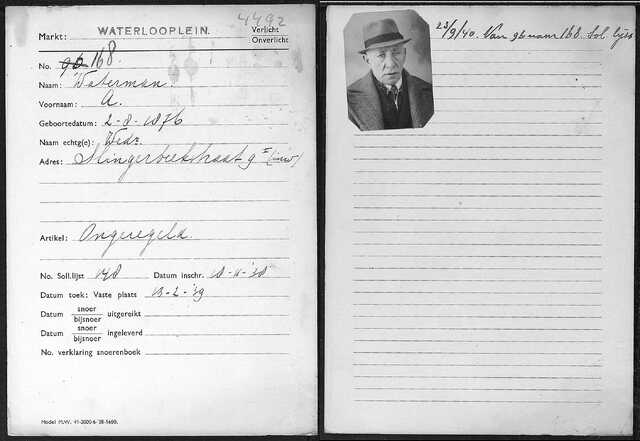 4492
Markt: WATERLOOPLEIN. Verlicht
Onverlicht
No. 96 168
Naam: Waterman.
Voornaam: A.
Geboortedatum: 2-8-1876
Naam echtg(e): Wedr.
Adres: Slingerbeekstraat 9 I (nw)
Artikel: Ongeregeld.
No. Soll.lijst 148 Datum inschr. 18-11-'38
Datum toek: Vaste plaats 13-2-'39
Datum snoer
bijsnoer uitgereikt
Datum snoer
bijsnoer ingeleverd
No. verklaring snoerenboek
Model M.W. 41-2000-6-'38-1690.
23/9/40. Van 96 naar 168. Sol. lijst